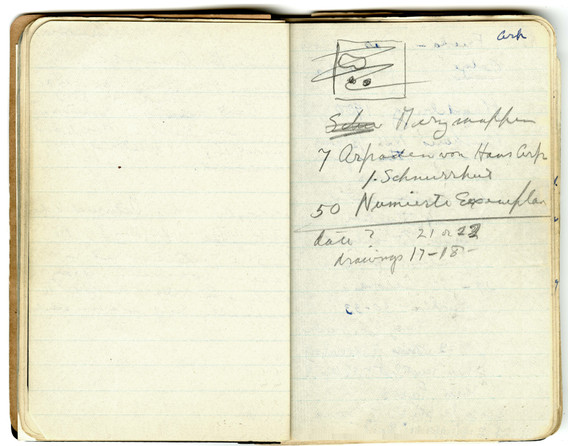 Arp
Merzmappen
7 Arpaden von Hans Arp
1. Schnurrhut
50 Numierte Exemplar
date? 21 or 22
drawings 17-18-